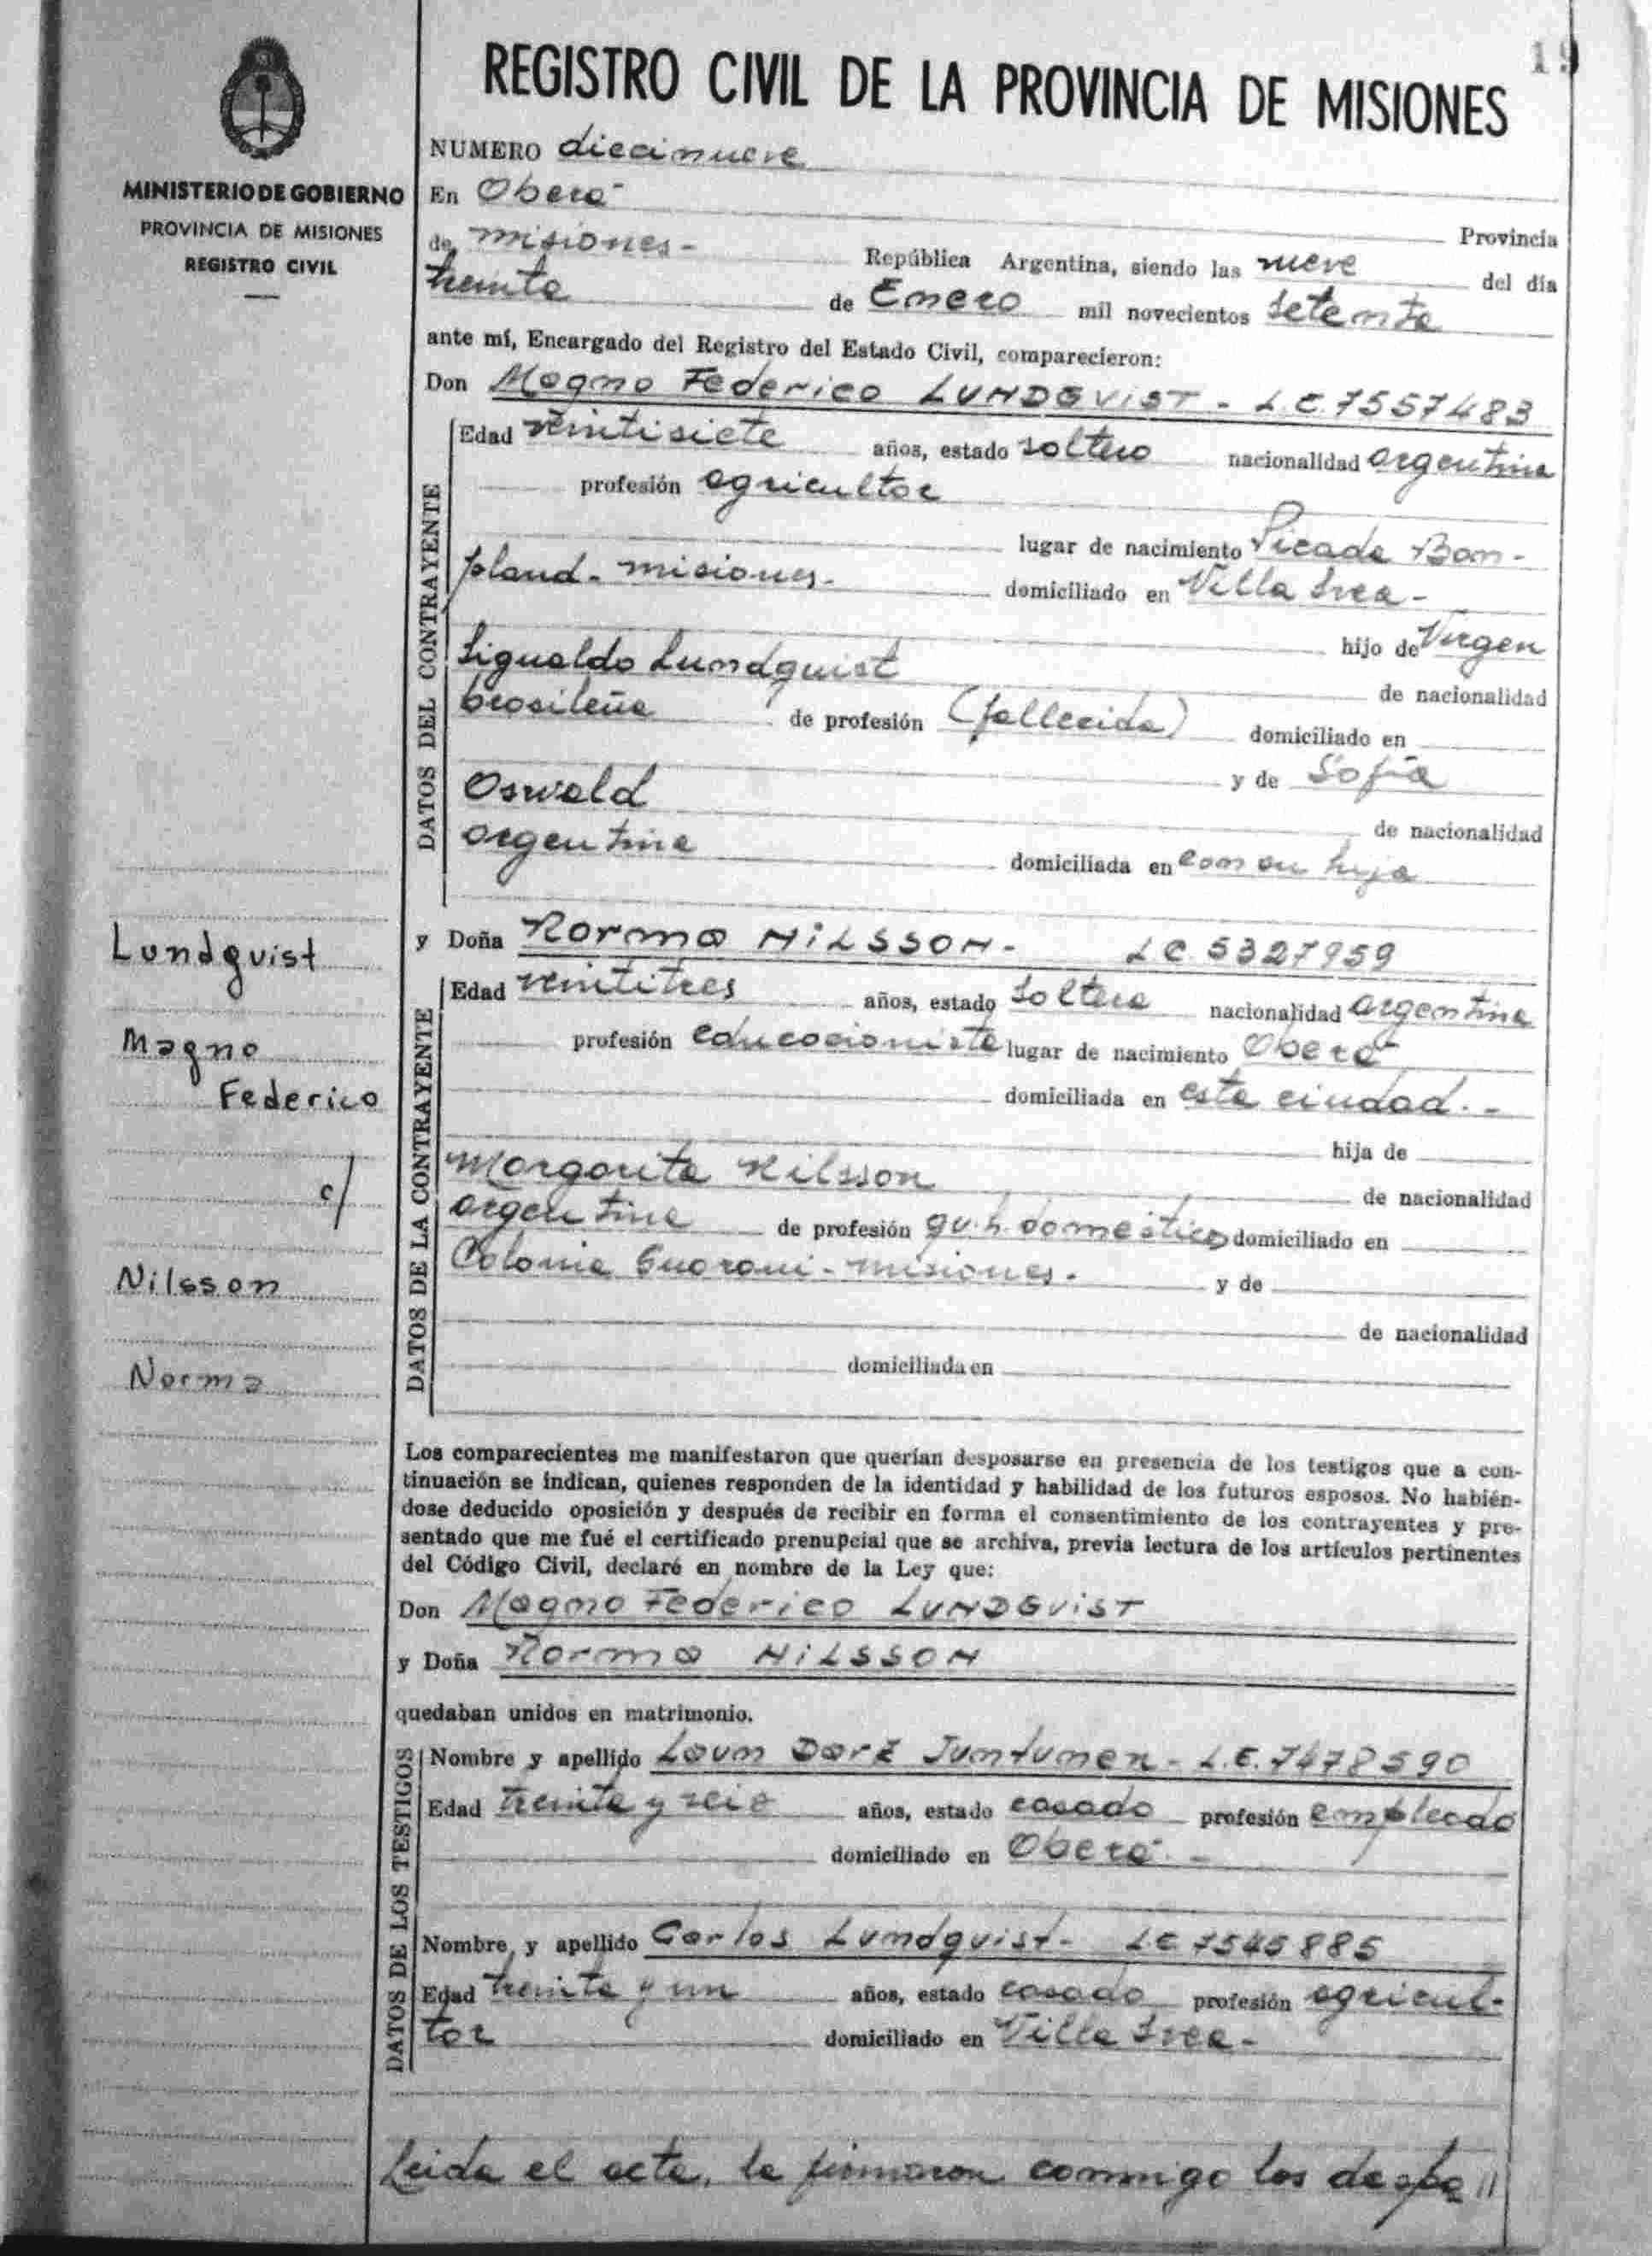 19
REGISTRO CIVIL DE LA PROVINCIA DE MISIONES
MINISTERIO DE GOBIERNO
PROVINCIA DE MISIONES
REGISTRO CIVIL
NUMERO diecinueve
En Oberá - Provincia
de misiones - República Argentina, siendo las nueve del día
treinta de Enero mil novecientos setenta
ante mí, Encargado del Registro del Estado Civil, comparecieron:
Don Magno Federico LUNDQViST - L.E. 7557483
DATOS DEL CONTRAYENTE
Edad veintisiete años, estado soltero nacionalidad argentina
profesión agricultor
lugar de nacimiento Picada Bon-
pland - misiones - domiciliado en Villa Svea -
hijo de Virgen
Sigualdo Lundquist de nacionalidad
brasileña de profesión (fallecida) domiciliado en
y de Sofía
Oswald de nacionalidad
argentina domiciliada en con su hija
y Doña Norma NiLSSON - LC 5327959
DATOS DE LA CONTRAYENTE
Edad veintitres años, estado soltera nacionalidad argentina
profesión educacionista lugar de nacimiento Oberá
domiciliada en esta ciudad. -
hija de
Margarita Nilsson de nacionalidad
argentina de profesión qu.h. domésticos domiciliado en
Colonia Guaraní - misiones. y de
de nacionalidad
domiciliada en
Lundquist
Magno
Federico
c/
Nilsson
Norma
Los comparecientes me manifestaron que querían desposarse en presencia de los testigos que a con-
tinuación se indican, quienes responden de la identidad y habilidad de los futuros esposos. No habién-
dose deducido oposición y después de recibir en forma el consentimiento de los contrayentes y pre-
sentado que me fué el certificado prenupcial que se archiva, previa lectura de los artículos pertinentes
del Código Civil, declaré en nombre de la Ley que:
Don Magno Federico LUNDQViST
y Doña Norma NiLSSON
quedaban unidos en matrimonio.
DATOS DE LOS TESTIGOS
Nombre y apellido Juntunen - L.E. 7478590
Edad treinta y seis años, estado casado profesión empleado
domiciliado en Oberá -
Nombre y apellido Carlos Lundquist - LE 7545885
Edad treinta y un años, estado casado profesión agricul-
tor domiciliado en Villa Svea -
Leida el acta, la firmaron conmigo los despo //